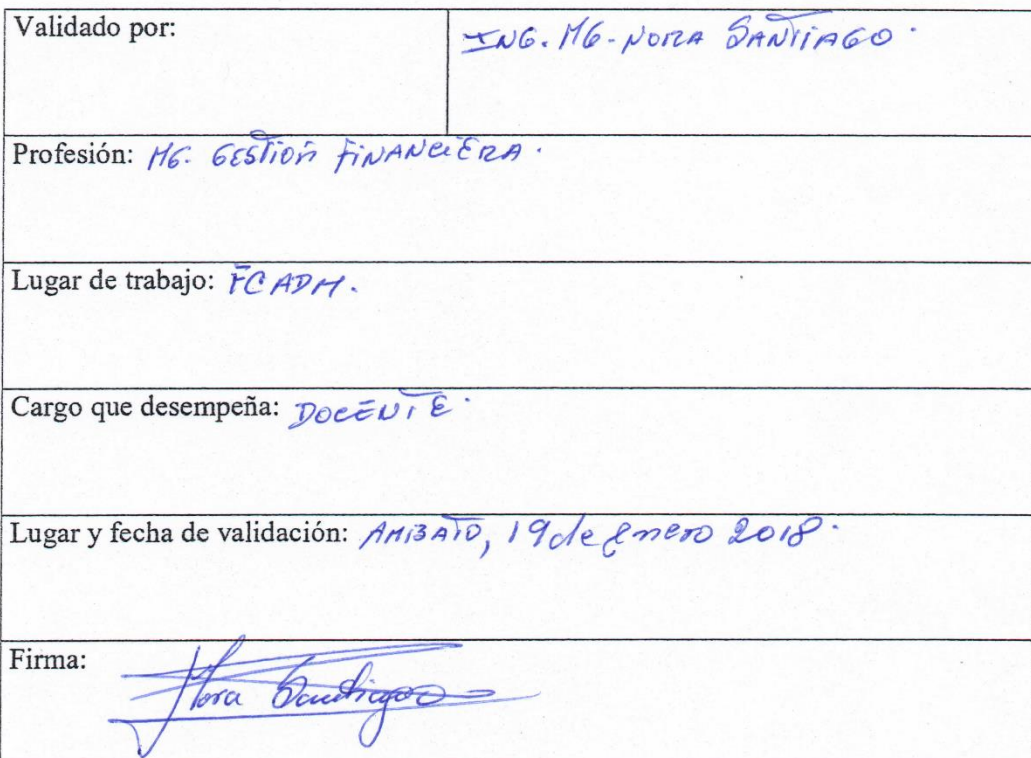 Validado por: ING. MG. NORA SANTIAGO.
Profesión: MG. GESTIÓN FINANCIERA.
Lugar de trabajo: FCADM.
Cargo que desempeña: DOCENTE.
Lugar y fecha de validación: AMBATO, 19 de Enero 2018.
Firma: Nora Santiago